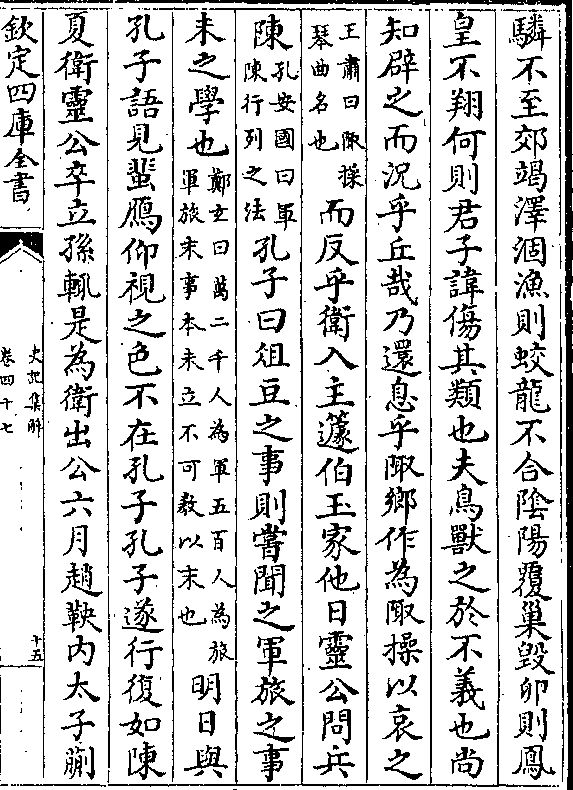 驎不至郊竭澤涸漁則蛟龍不合陰陽覆巢毀卵則鳳
皇不翔何則君子諱傷其類也夫鳥獸之於不義也尚
知辟之而況乎丘哉乃還息乎陬鄉作為陬操以哀之
王肅曰陬操
琴曲名也
而反乎衛入主蘧伯玉家他日靈公問兵
陳
孔安國曰軍
陳行列之法
孔子曰俎豆之事則嘗聞之軍旅之事
未之學也
鄭玄曰萬二千人為軍五百人為旅
軍旅末事本未立不可教以末也
明日與
孔子語見蜚鴈仰視之色不在孔子孔子遂行復如陳
夏衛靈公卒立孫輒是為衛出公六月趙鞅内太子蒯
欽定四庫全書
史記集解
卷四十七
十五